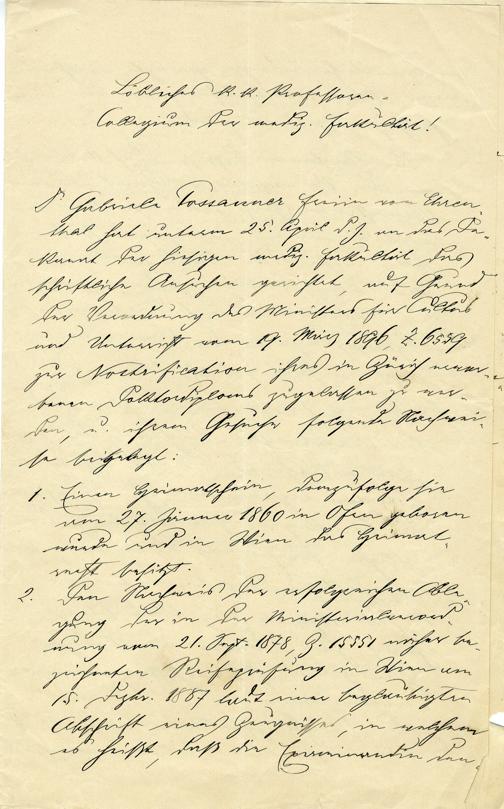 Löbliches k. k. Professoren-
Collegium der mediz. Fakultät!
Dr Gabriele Possanner Freiin von Ehren
thal hat unterm 25. April d. J. an das De-
kanat der hiesigen mediz. Fakultät das
schriftliche Ansuchen gerichtet, auf Grund
der Verordnung des Ministers für Cultus
und Unterricht vom 19. März 1896, Z. 6559
zur Nostrification ihres in Zürich erwor-
benen Doktordiploms zugelassen zu wer-
den, u. ihrem Gesuche folgende Nachwei-
se beigelegt:
1. Einen Heimatschein, demzufolge sie
am 27. Jänner 1860 in Ofen geboren
wurde und in Wien das Heimat-
recht besitzt.
2. Den Nachweis der erfolgreichen Able-
gung der in der Ministerialverord-
nung vom 21. Sept. 1878, Z. 15551 näher be-
zeichneten Reifeprüfung in Wien am
15. Dezbr. 1887 laut einer beglaubigten
Abschrift eines Zeugnisses, in welchem
es heißt, daß die Examinandin den-